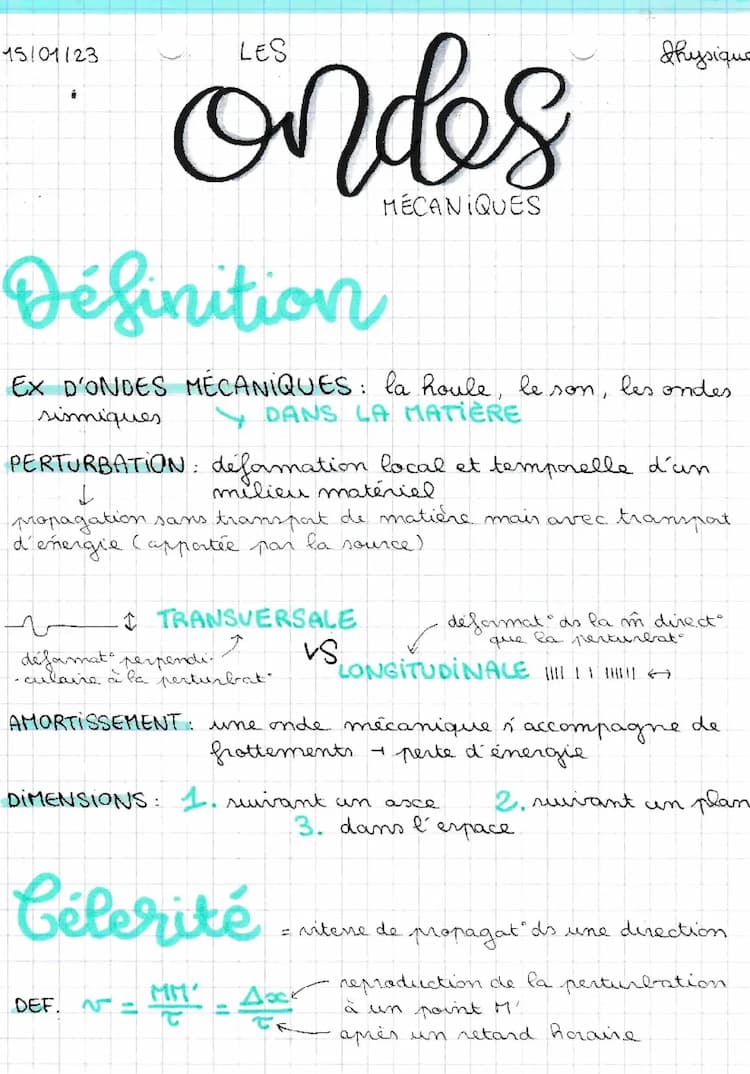 15/01/23
LES
Physique
ondes
MÉCANIQUES
Définition
EX D'ONDES MÉCANIQUES : la houle, le son, les ondes
sismiques ↘ DANS LA MATIÈRE
PERTURBATION : déformation local et temporelle d'un
milieu matériel
↓
propagation sans transport de matière mais avec transport
d'énergie (apportée par la source)
↕ TRANSVERSALE
déformat° perpendi-
-culaire à la perturbat°
VS
déformat° ds la m̂ direct°
que la perturbat°
LONGITUDINALE ↔
AMORTISSEMENT : une onde mécanique s'accompagne de
frottements → perte d'énergie
DIMENSIONS : 1. suivant un axe 2. suivant un plan
3. dans l'espace
Célérité = vitesse de propagat° ds une direction
DEF. v = MM'/τ = Δx/τ
reproduction de la perturbation
à un point M'
après un retard horaire